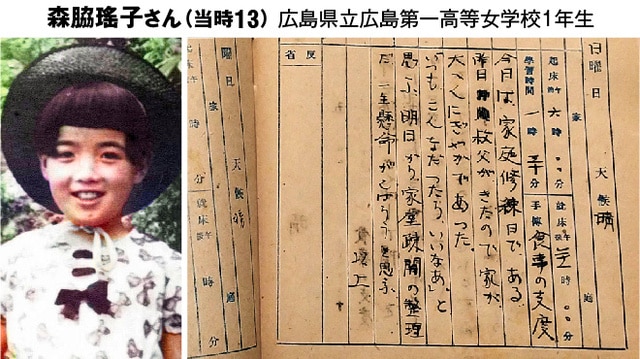 森脇瑤子さん(当時13) 広島県立広島第一高等女学校1年生
日曜日 天候 晴
家庭
起床 六時〇〇分 就床 時〇〇分
學習時間 一時三十分 手傳 食事の支度
今日は、家庭修練日である。
昨日、叔父がきたので、家が
大へんにぎやかであった。
「いつもこんなだったら、いいなあ」と
思ふ。明日から、家屋疎開の整理
だ。一生懸命がんばらうと思ふ。
反省
曜日 天候
家庭
時 分
時 分